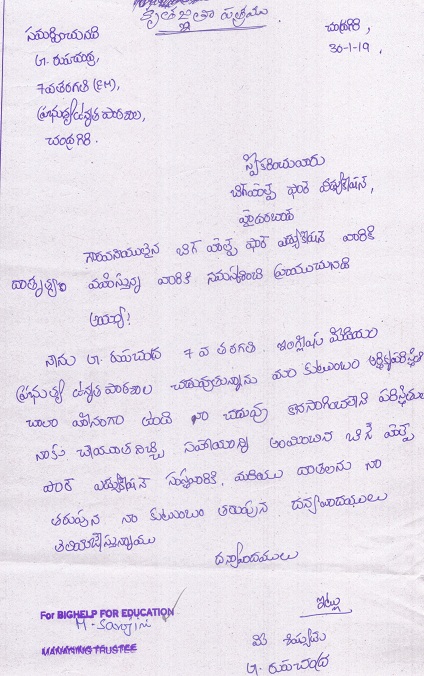 కృతజ్ఞతా పత్రము
చంద్రగిరి,
30-1-19,
సమర్పించునది
G. రుపచంద్ర,
7వ తరగతి (EM),
ప్రభుత్వ ఉన్నత పాఠశాల,
చంద్రగిరి.
స్వీకరించువారు
బిగ్ హెల్ప్ ఫార్ ఎడ్యుకేషన్,
హైదరబాద్
గౌరవనియులైన బిగ్ హెల్ప్ ఫార్ ఎడ్యుకేషన్ వారికి
దాతృత్వం వహిస్తున్న వారికి నమస్కరించి వ్రాయునది
అయ్యా!
నేను G. రుపచంద్ర 7 వ తరగతి ఇంగ్లీష్ మిడియం
ప్రభుత్వ ఉన్నత పాఠశాల చదువుతున్నాను మా కుటుంబం ఆర్థికపరిస్థితి
చాలా హీనంగా ఉంది నా చదువు కొనసాగించలేని పరిస్థితుల
నాకు చేయూతనిచ్చి సహాయాన్ని అందించిన బిగ్ హెల్ప్
ఫార్ ఎడ్యుకేషన్ సంస్థవారికి, మరియు దాతలను నా
తరుపున నా కుటుంబం తరుపున ధన్యవాదములు
తెలియజేస్తున్నాము
ధన్యవాదములు
For BIGHELP FOR EDUCATION
M. Saujini
MANAGING TRUSTEE
ఇట్లు
మీ శిష్యుడు
G. రుపచంద్ర